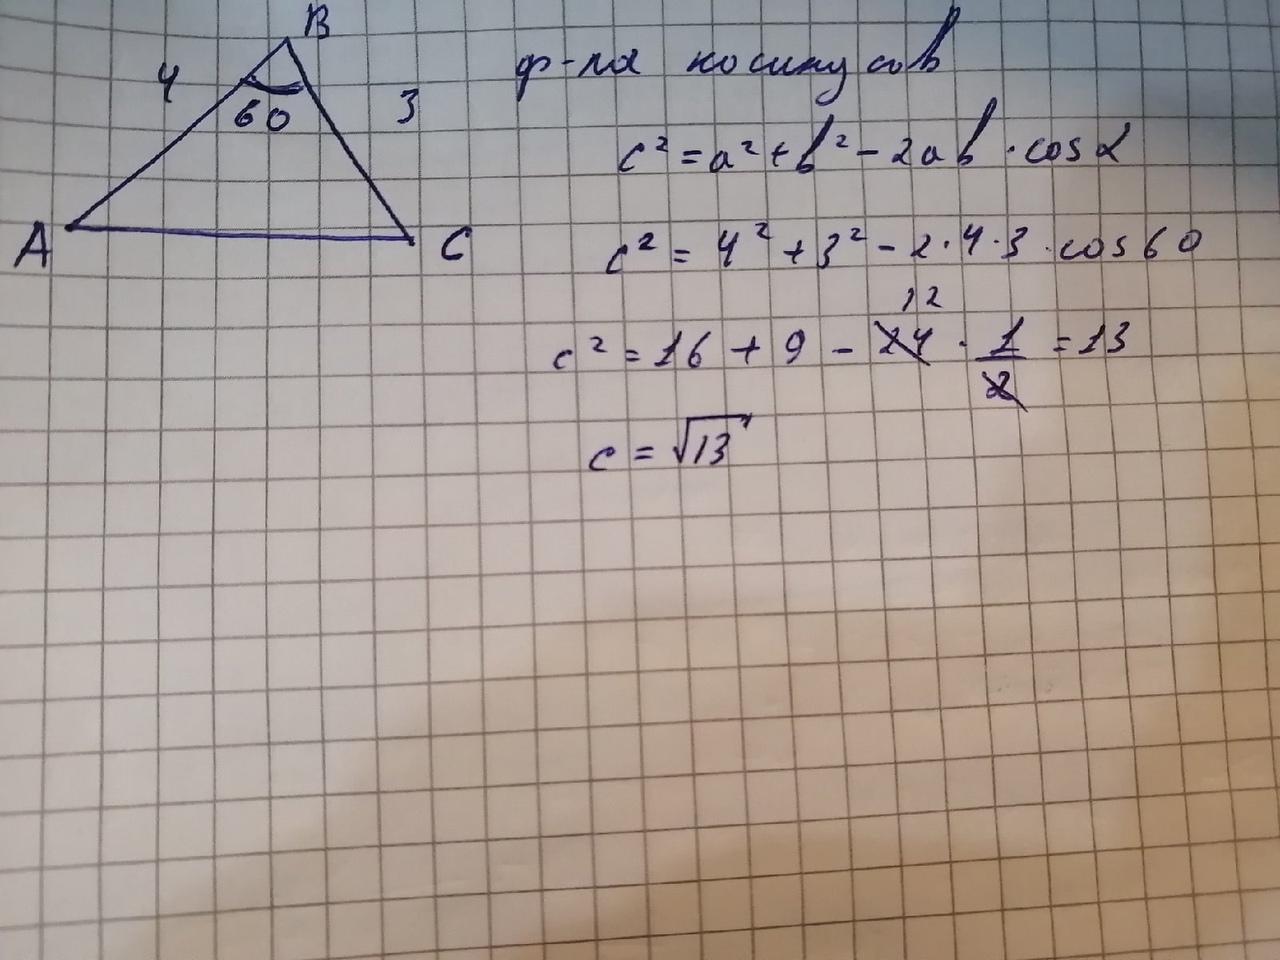 B
4
60
3
A
C
ф-ла косинусов
c² = a² + b² - 2ab · cos α
c² = 4² + 3² - 2 · 4 · 3 · cos 60
12
c² = 16 + 9 - 24 · 1/2 = 13
c = √13